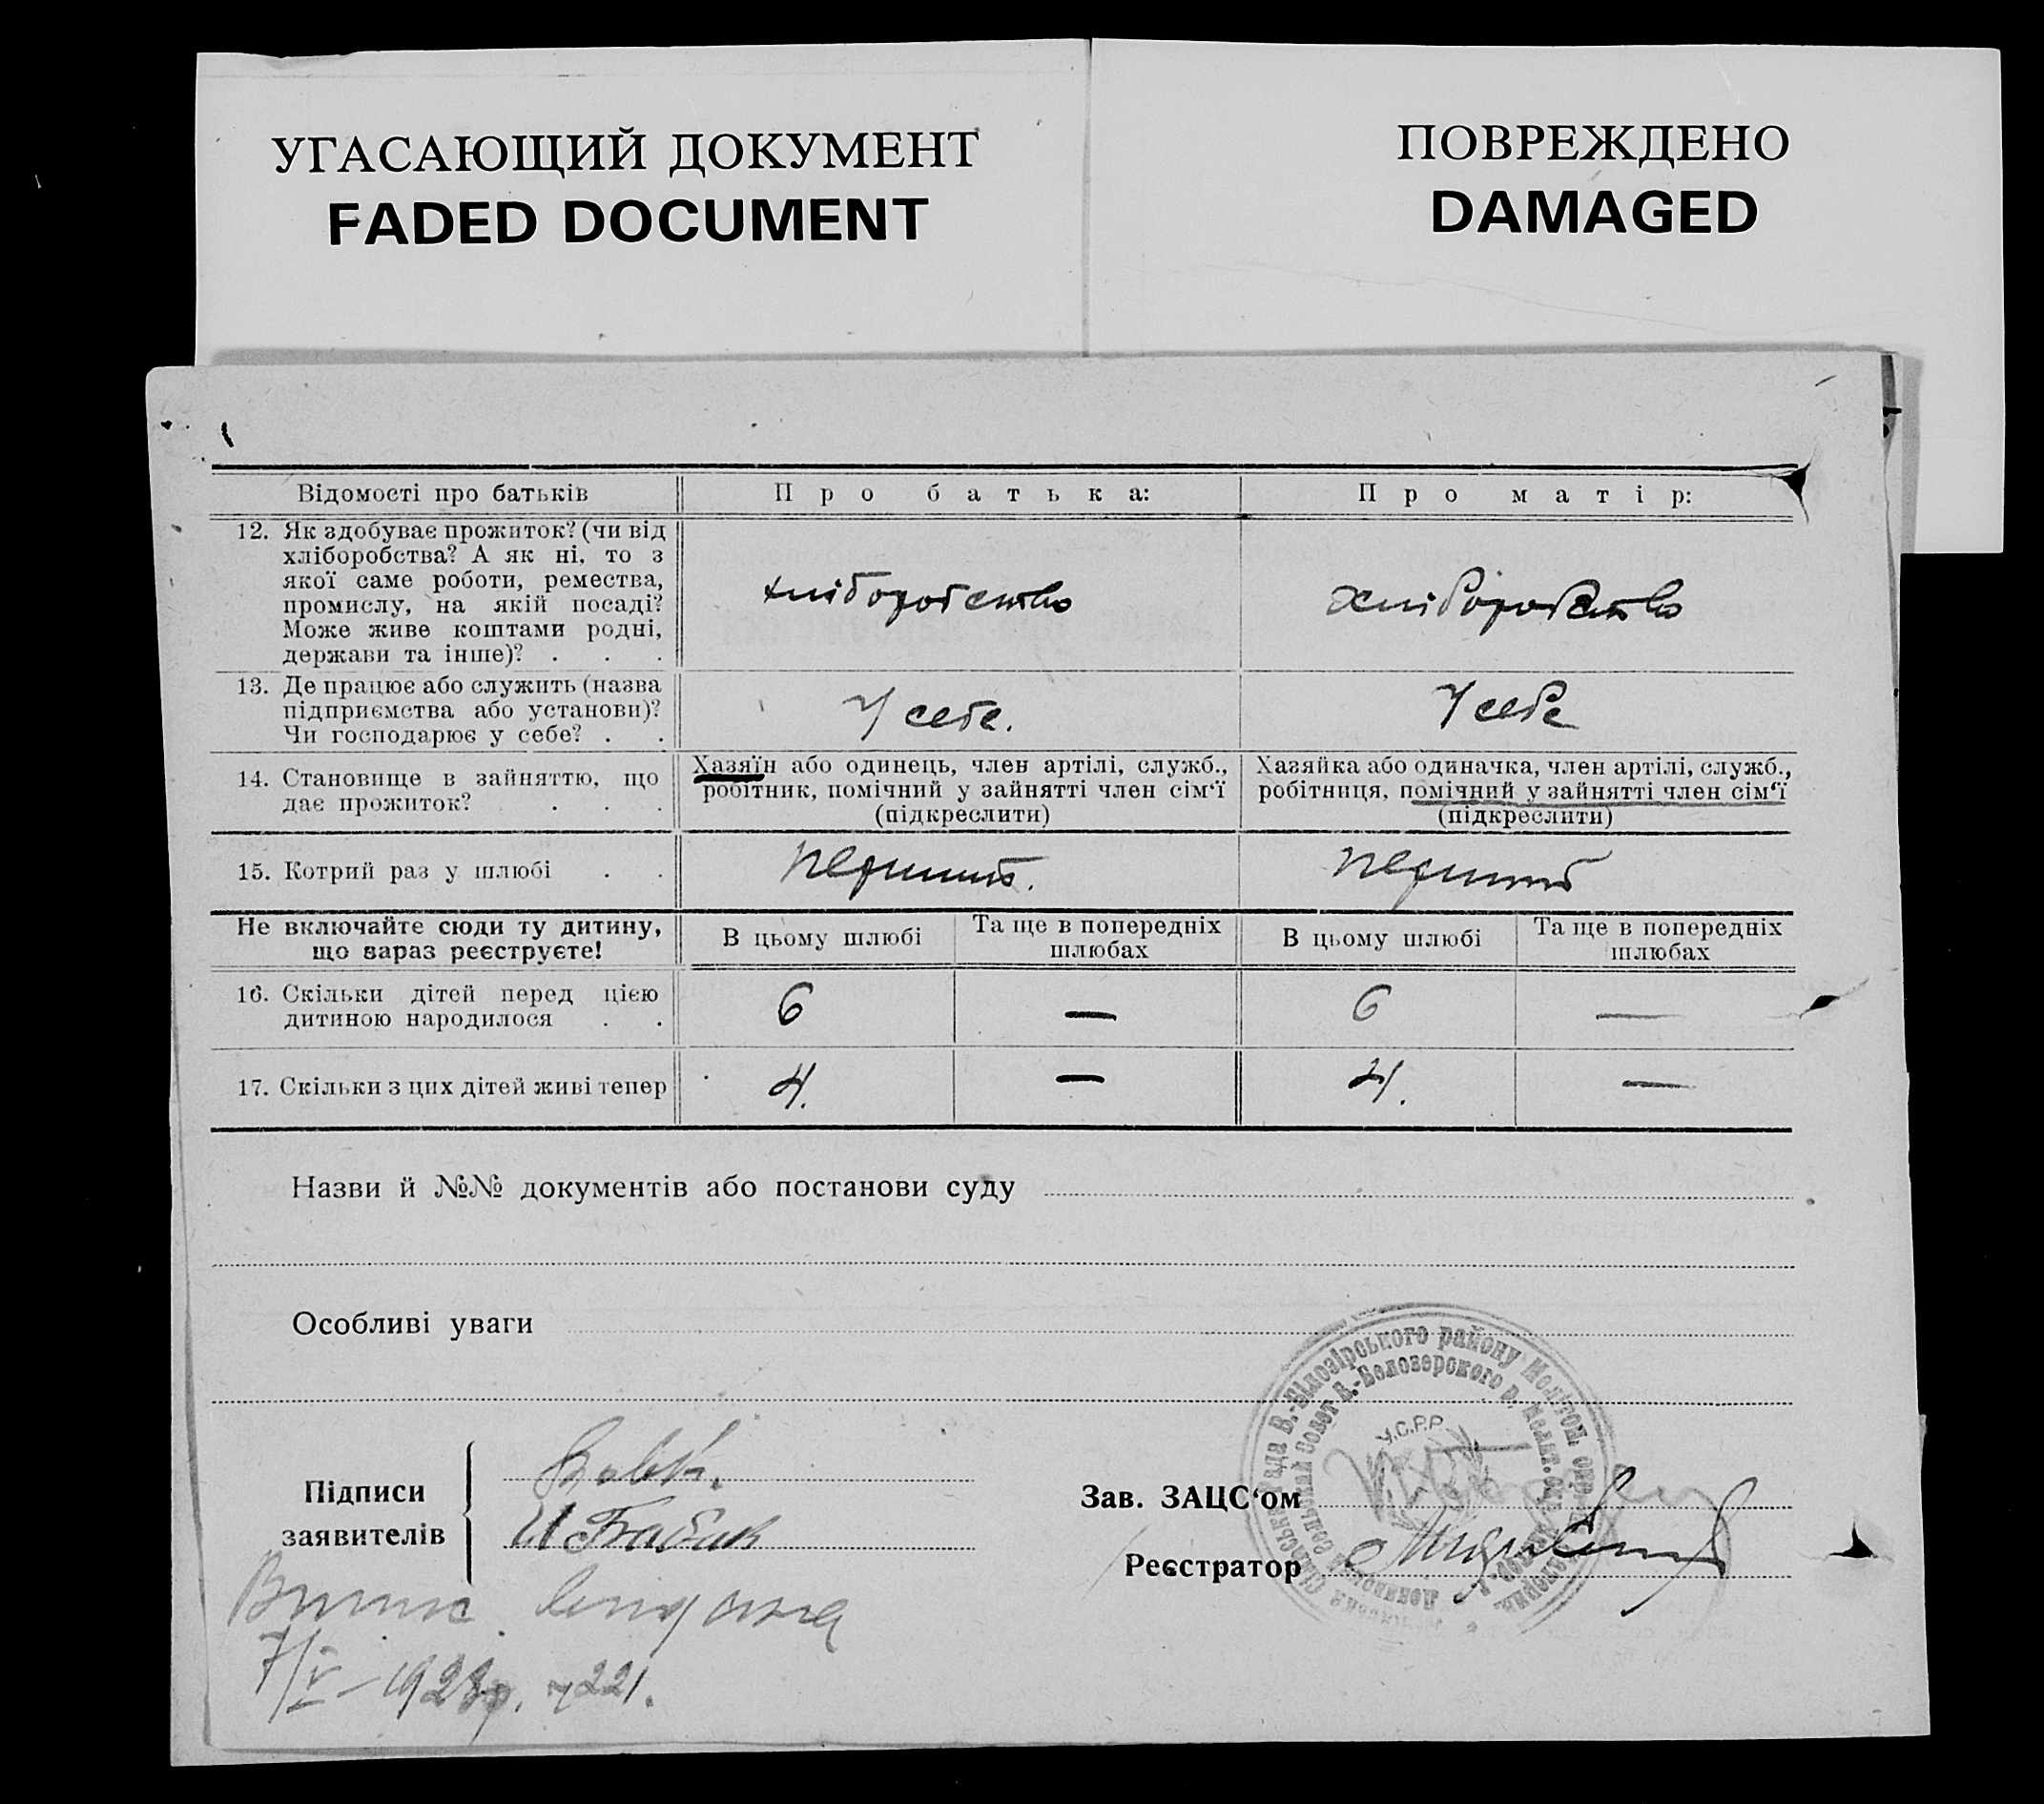 УГАСАЮЩИЙ ДОКУМЕНТ
FADED DOCUMENT
ПОВРЕЖДЕНО
DAMAGED
Відомості про батьків
Про батька:
Про матір:
12. Як здобуває прожиток? (чи від
хліборобства? А як ні, то з
якої саме роботи, ремества,
промислу, на якій посаді?
Може живе коштами родні,
держави та інше)? . . .
хліборобство
хліборобство
13. Де працює або служить (назва
підприємства або установи)?
Чи господарює у себе? . .
У себе.
У себе
14. Становище в зайняттю, що
дає прожиток? . . .
Хазяїн або одинець, член артілі, служб.,
робітник, помічний у зайнятті член сім‘ї
(підкреслити)
Хазяйка або одиначка, член артілі, служб.,
робітниця, помічний у зайнятті член сім‘ї
(підкреслити)
15. Котрий раз у шлюбі . .
Не включайте сюди ту дитину,
що зараз реєструєте!
В цьому шлюбі
Та ще в попередніх
шлюбах
В цьому шлюбі
Та ще в попередніх
шлюбах
16. Скільки дітей перед цією
дитиною народилося . .
6
—
6
—
17. Скільки з цих дітей живі тепер
4.
—
4.
—
Назви й №№ документів або постанови суду
Особливі уваги
Підписи
заявителів
И Бабик
Зав. ЗАЦС‘ом
Реєстратор
рада В.-Білозірського району Меліton. окр.
Совет В.-Белозерского р. Мелит. окр.
У.С.Р.Р.
7/V – 1928р. 221.